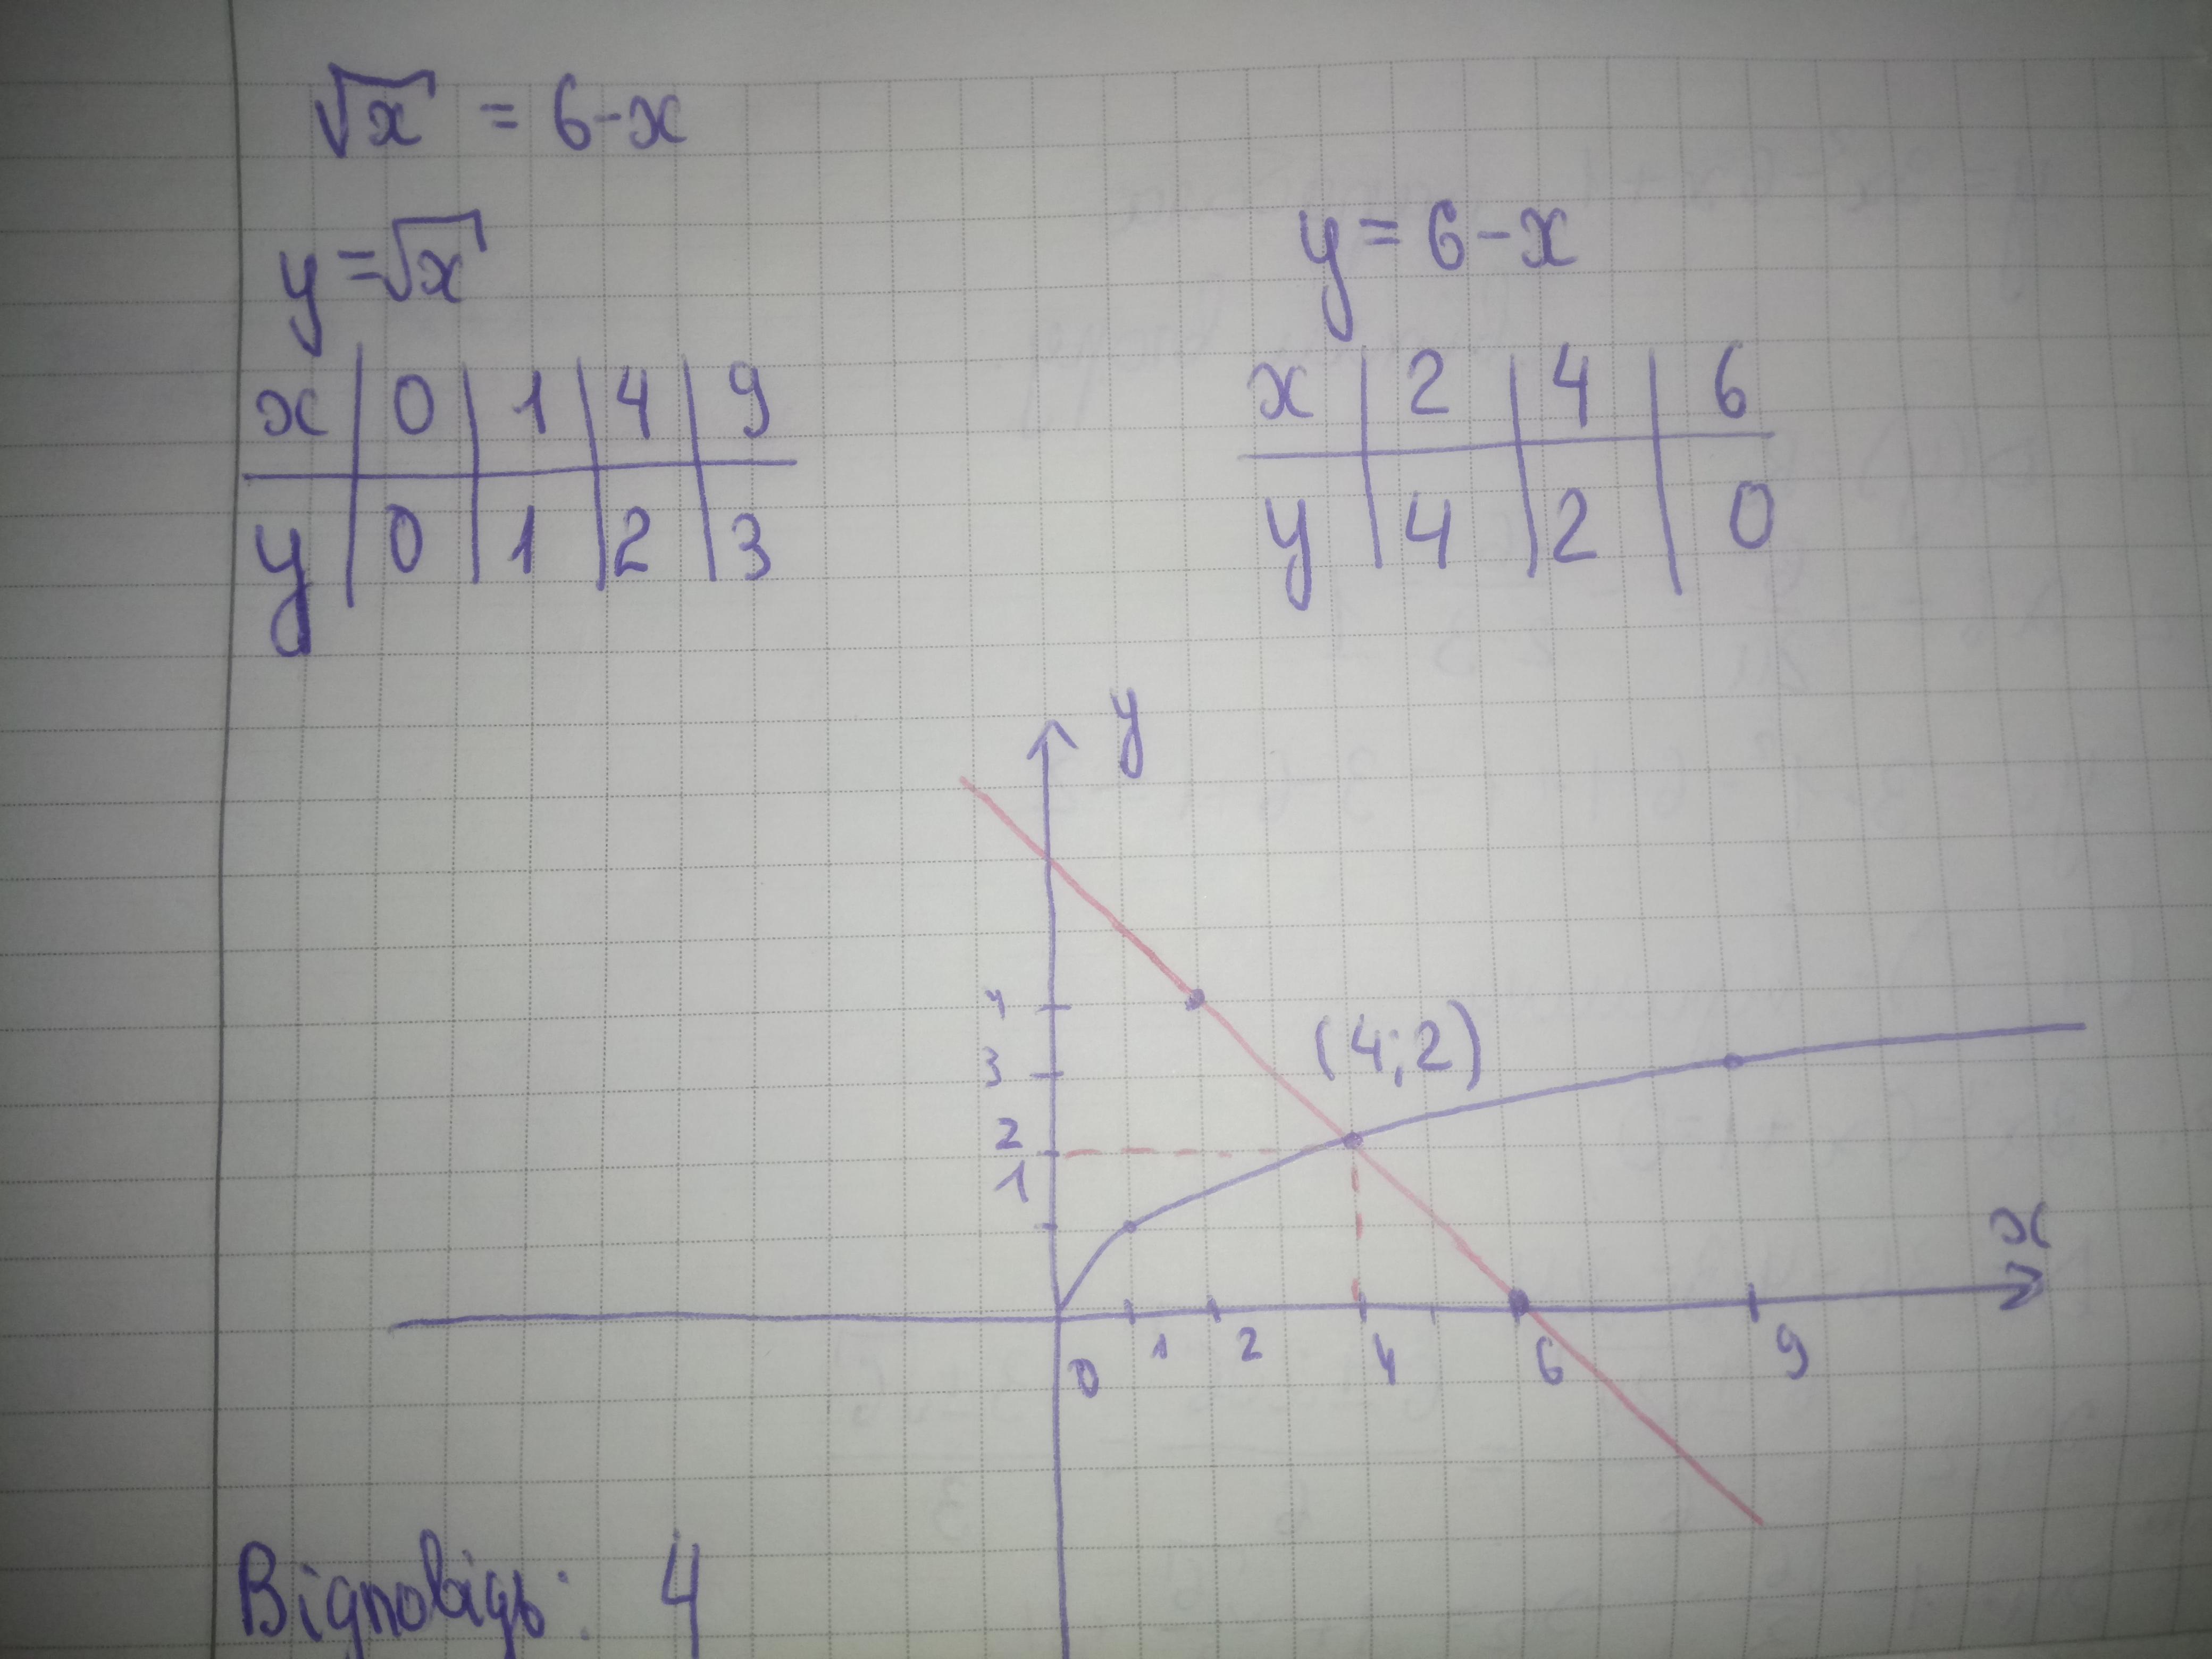 √x = 6-x
y=√x
y = 6-x
x | 0 | 1 | 4 | 9
y | 0 | 1 | 2 | 3
x | 2 | 4 | 6
y | 4 | 2 | 0
y
4
(4;2)
3
2
1
x
0 1 2 4 6 9
Відповідь: 4